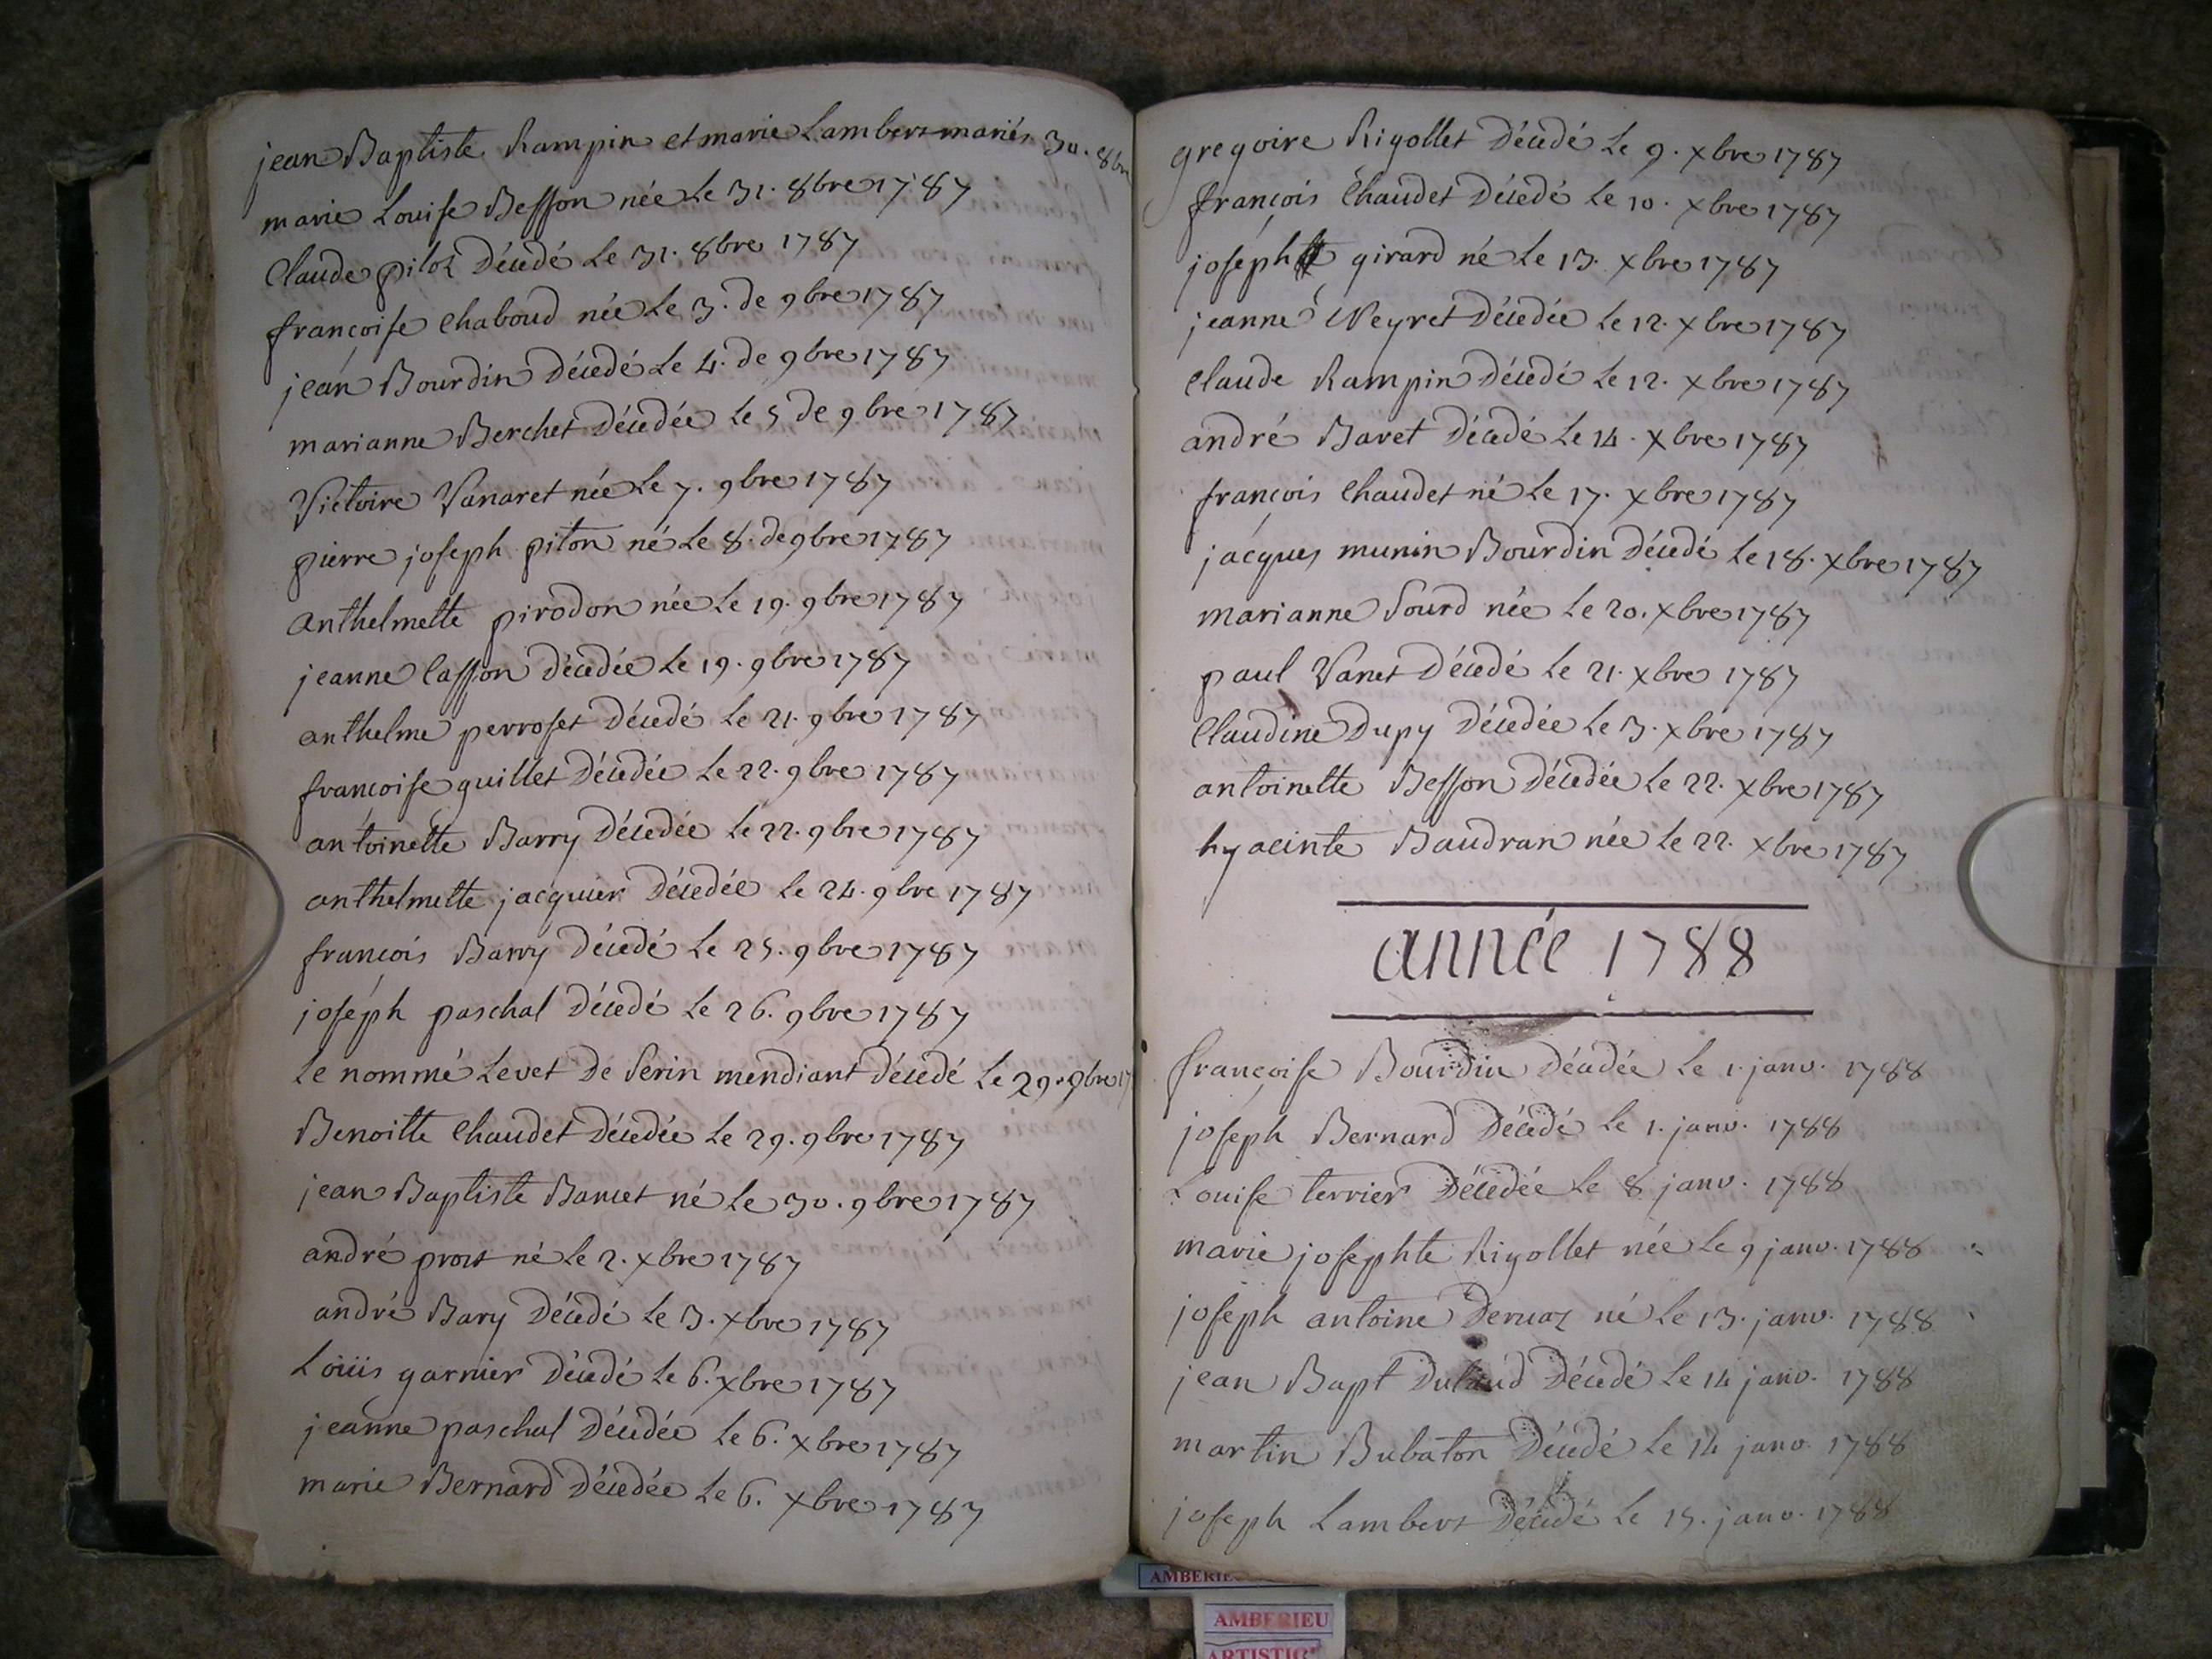 jean Baptiste Rampin et marie Lambert mariés 30. 8br
marie Louise Besson née Le 31. 8bre 1787
Claude piloz Décedé Le 31. 8bre 1787
françoise Chaboud née Le 3. de 9bre 1787
jean Bourdin Décedé Le 4. de 9bre 1787
marianne Berchet Décedée Le 5 de 9bre 1787
Victoire Vanaret née Le 7. 9bre 1787
pierre joseph piton né Le 8. de 9bre 1787
anthelmette pirodon née Le 19. 9bre 1787
jeanne Casson Décedée Le 19. 9bre 1787
anthelme perroset Décedé Le 21. 9bre 1787
françoise guillet Décedée Le 22. 9bre 1787
antoinette Barry Décedée Le 22. 9bre 1787
anthelmette jacquier Décedée Le 24. 9bre 1787
françois Barry Décedé Le 25. 9bre 1787
joseph paschal Décedé Le 26. 9bre 1787
Le nommé Levet De Serin mendiant Décedé Le 29. 9bre 17
Benoitte Chaudet Décedée Le 29. 9bre 1787
jean Baptiste Bancet né Le 30. 9bre 1787
andré prost né Le 2. Xbre 1787
andré Bary Décedé Le 3. Xbre 1787
Loüis garnier Décedé Le 6. Xbre 1787
jeanne paschal Décedée Le 6. Xbre 1787
marie Bernard Décedée Le 6. Xbre 1787
gregoire Rigollet Décedé Le 9. Xbre 1787
françois Chaudet Décedé Le 10. Xbre 1787
joseph girard né Le 13. Xbre 1787
jeanne Neyret Décedée Le 12. Xbre 1787
Claude Rampin Décedé Le 12. Xbre 1787
andré Bavet Décedé Le 14. Xbre 1787
françois Chaudet né Le 17. Xbre 1787
jacques munin Bourdin Décedé Le 18. Xbre 1787
marianne Sourd née Le 20. Xbre 1787
paul Vanet Décedé Le 21. Xbre 1787
Claudine Dupy Décedée Le 3. Xbre 1787
antoinette Besson Décedée Le 22. Xbre 1787
hyacinte Baudran née Le 22. Xbre 1787
année 1788
françoise Bourdin Décedée Le 1. janv. 1788
joseph Bernard Décédé Le 1. janv. 1788
Louise terrier Décedée Le 8 janv. 1788
marie josephte Rigollet née Le 9 janv. 1788
joseph antoine Deruaz né Le 13. janv. 1788
jean Bapt Décedé Le 14 janv. 1788
martin Bubaton Décedé Le 14 janv. 1788
joseph Lambert Décedé Le 15. janv. 1788
AMBERIEU
ARTISTIQ